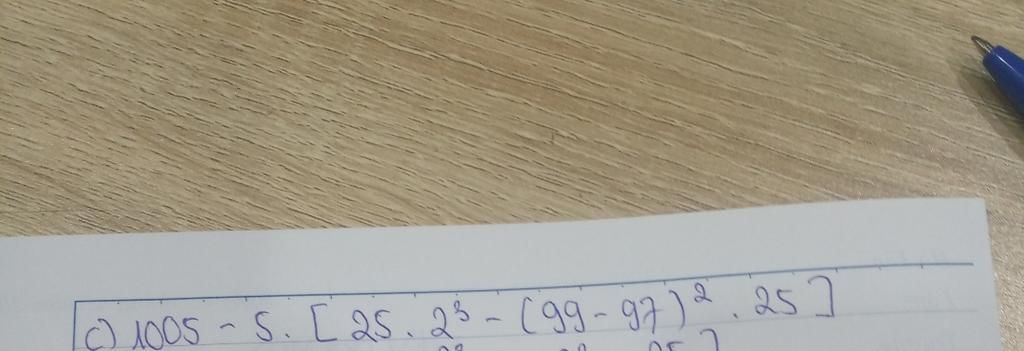 c) 1005 - 5. [25. 2³ - (99 - 97)² . 25]